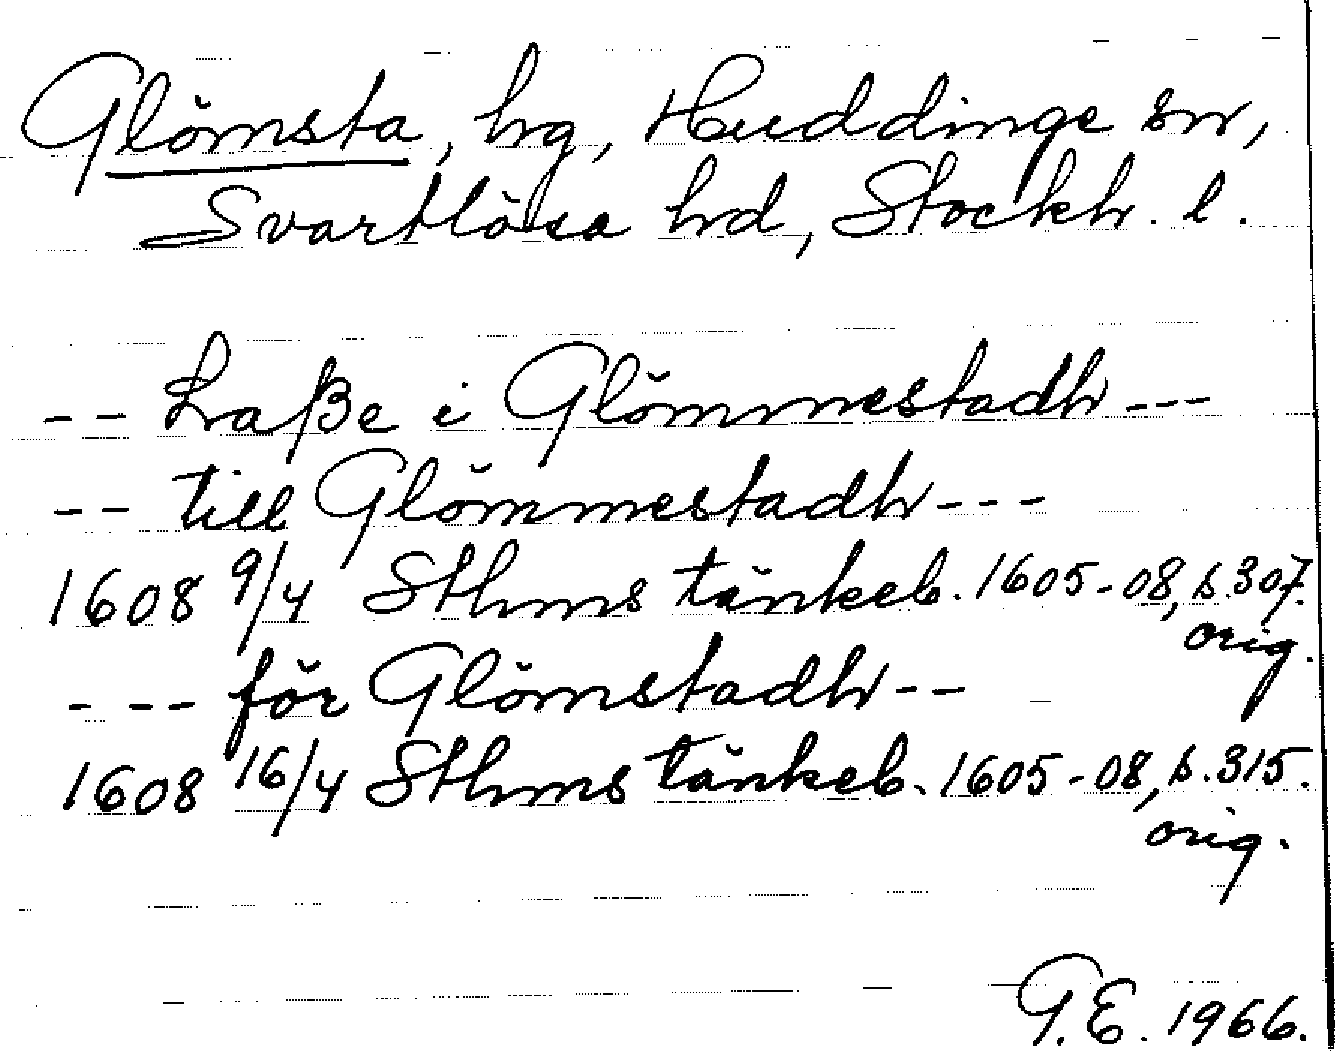 Glömsta, hg, Huddinge sn,
Svartlösa hd, Stockh. l.
-- Laße i Glömmestadh ---
-- till Glömmestadh ---
1608 9/4 Sthms tänkeb. 1605-08, s. 307.
orig.
- -- för Glömstadh --
1608 16/4 Sthms tänkeb. 1605-08, s. 315.
orig.
G.E. 1966.